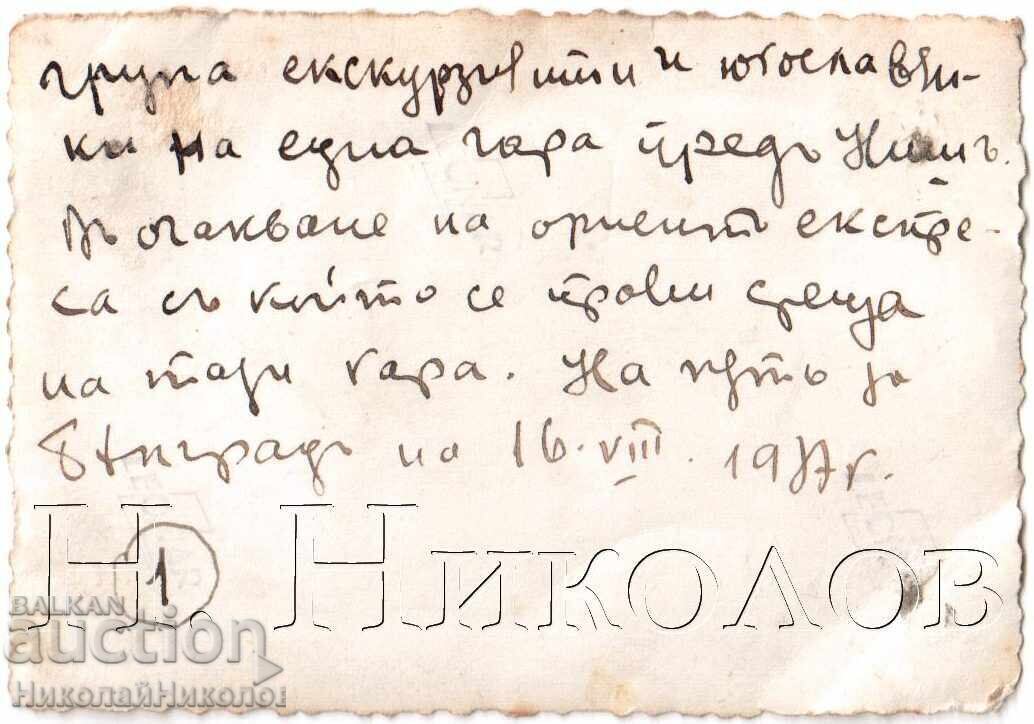 група екскурзияти и югославян-
ки на една гара предъ Нишъ.
Въ очакване на ориентъ експре-
са съ който се прави среща
на тази гара. На пѫть за
Бѣлградъ на 16. VIII. 1937 г.
1
Н. Николов
BALKAN
auction
НиколайНиколов